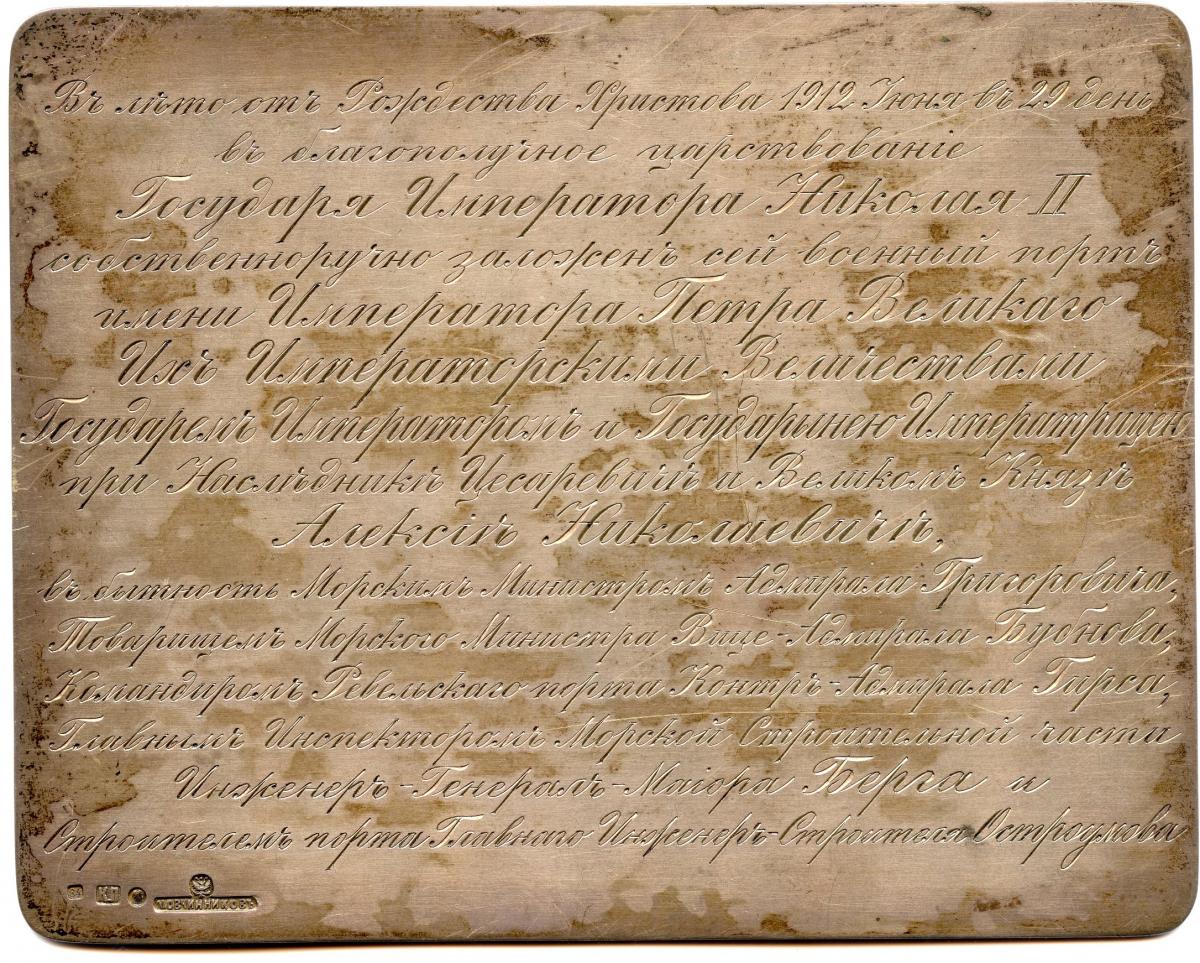 Въ лѣто отъ Рождества Христова 1912 Іюня въ 29 день
въ благополучное царствованіе
Государя Императора Николая II
собственноручно заложенъ сей военный портъ
имени Императора Петра Великаго
Ихъ Императорскими Величествами
Государемъ Императоромъ и Государынею Императрицею
при Наслѣдникѣ Цесаревичѣ и Великомъ Князѣ
Алексіѣ Николаевичѣ,
въ бытность Морскимъ Министромъ Адмирала Григоровича,
Товарищемъ Морского Министра Вице-Адмирала Бубнова,
Командиромъ Ревельскаго порта Контръ-Адмирала Гирса,
Главнымъ Инспекторомъ Морской Строительной части
Инженеръ-Генералъ-Маіора Берга и
Строителемъ порта Главнаго Инженеръ-Строителя Остроумова
84 КГ П.ОВЧИННИКОВЪ